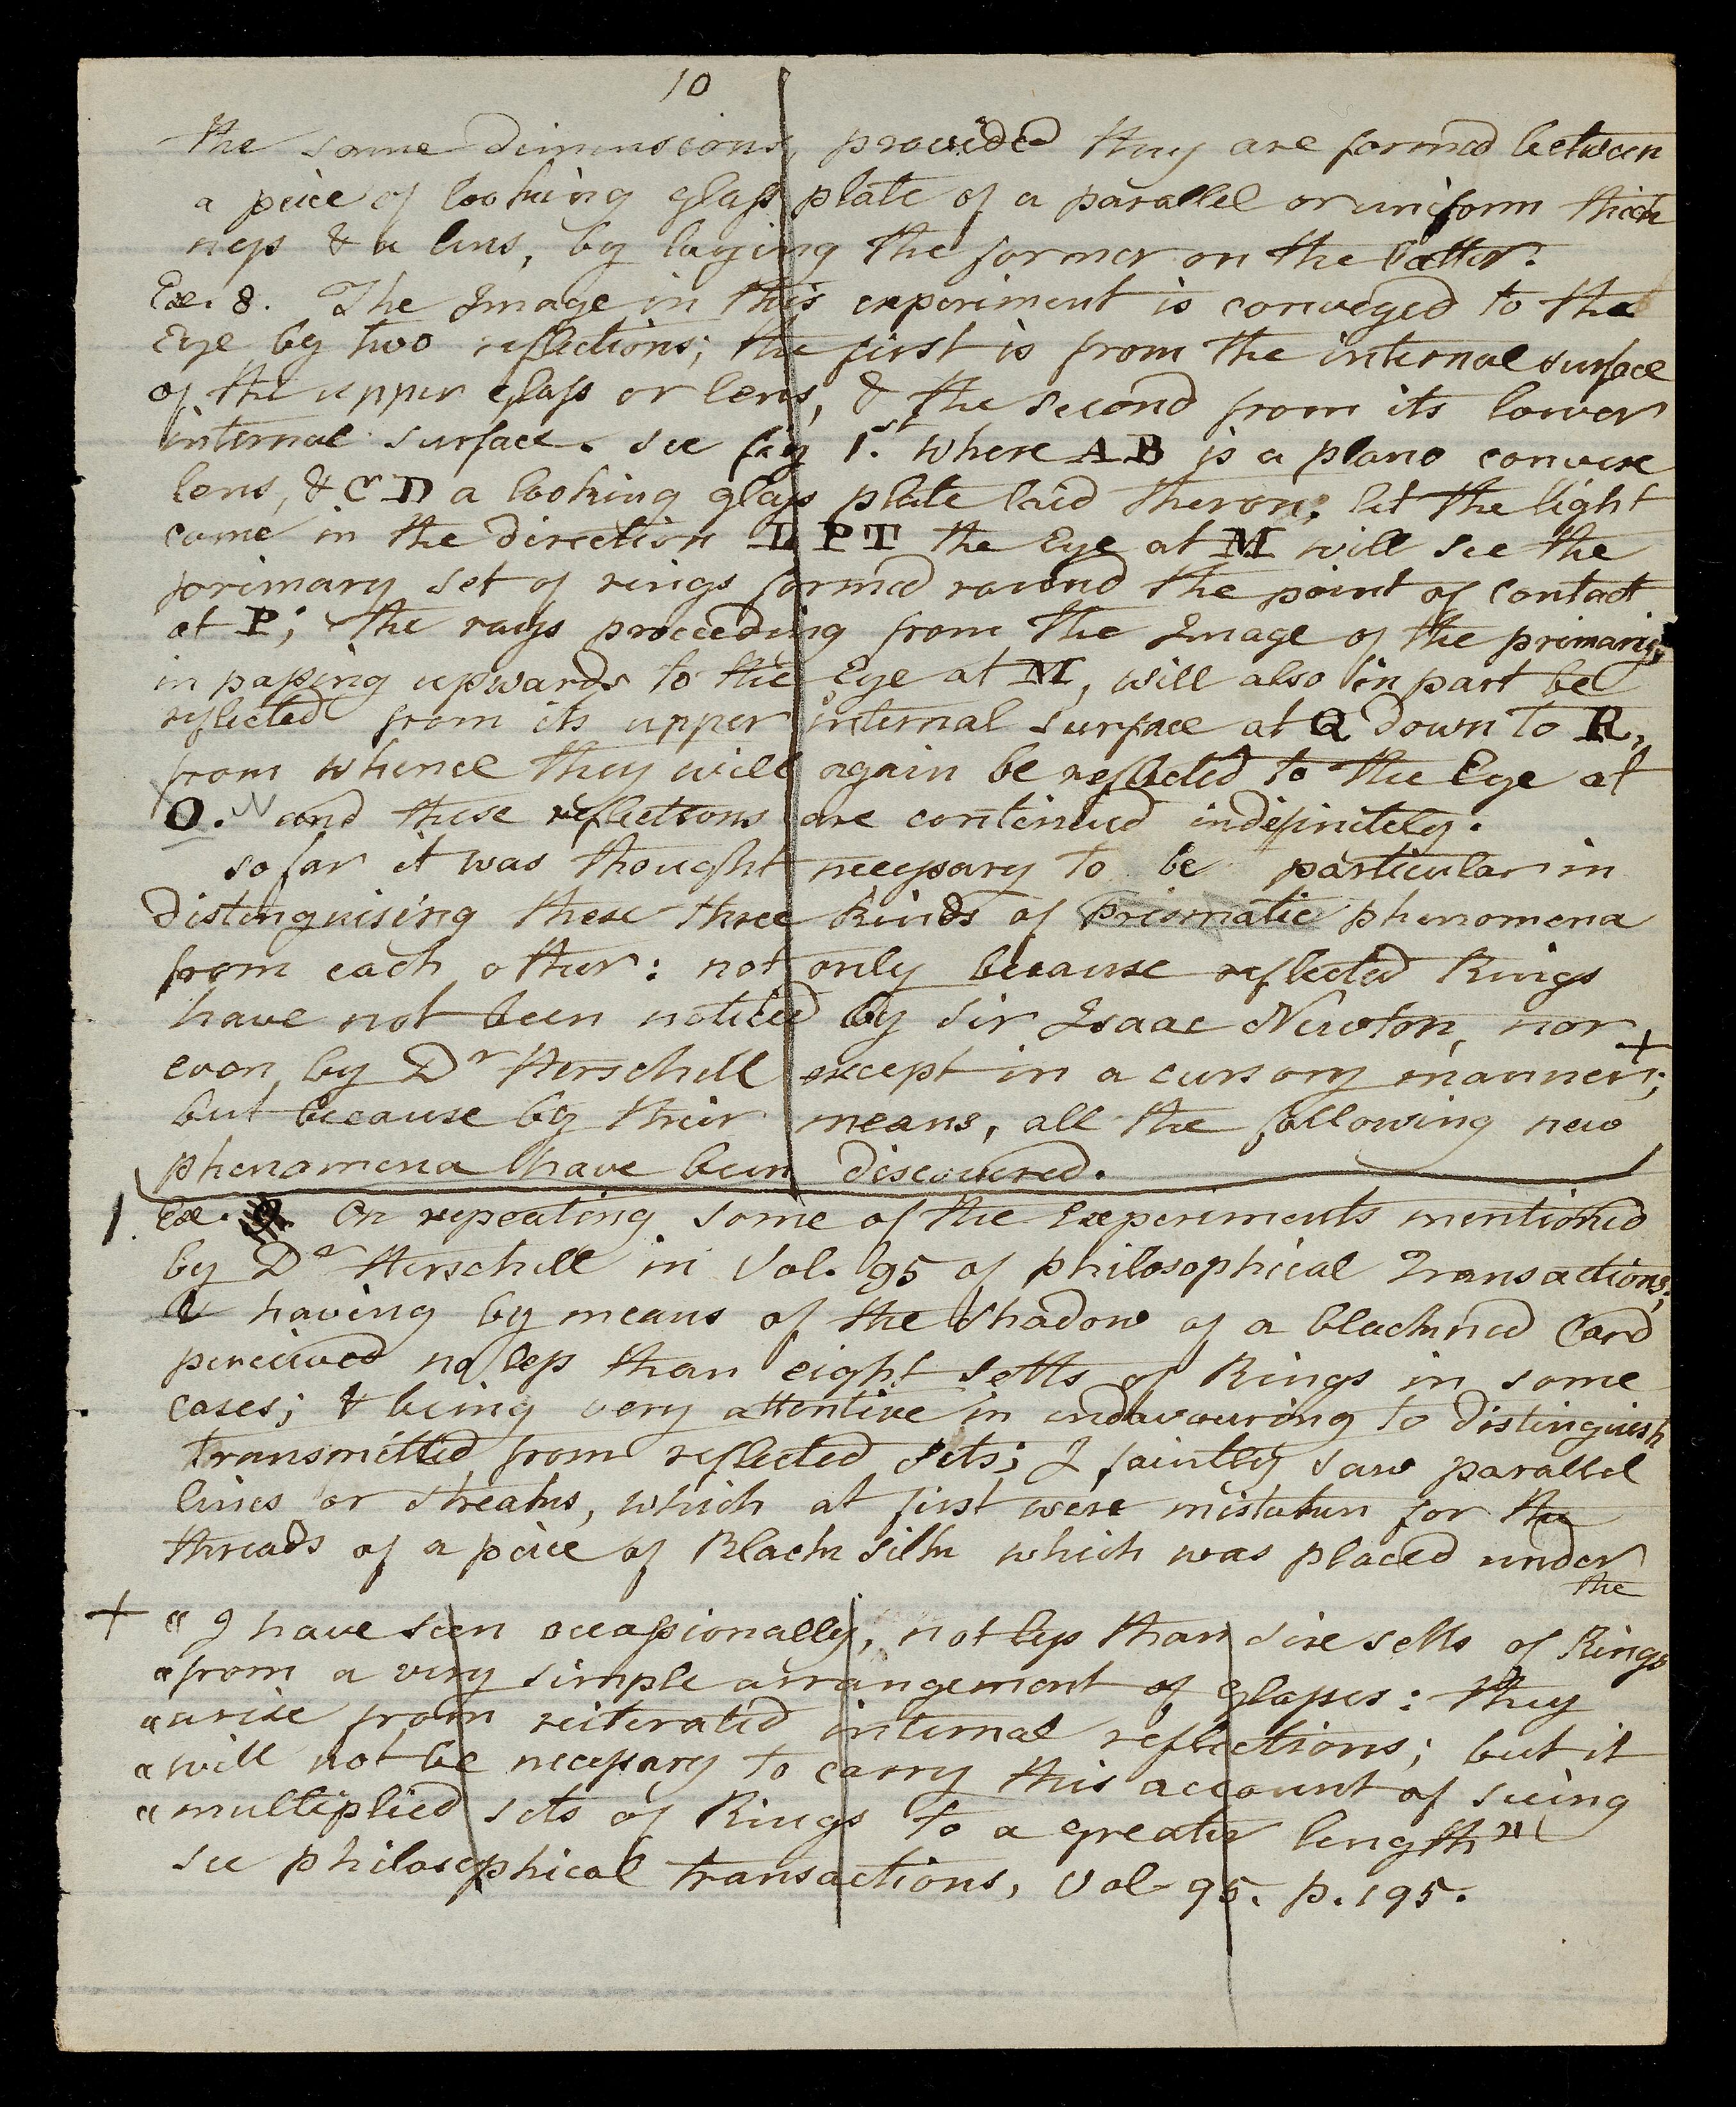 10
the same dimensions, provided they are formed between
a peice of looking glass plate of a parallel or uniform thick
ness & a lens, by laying the former on the latter.
Ex. 8. The Image in this experiment is conveyed to the
Eye by two reflections; the first is from the internal surface
of the upper glass or lens, & the second from its lower
internal surface. see fig 1.st where AB is a plano convex
lens, & CD a looking glass plate laid theron; let the light
come in the direction LPT the Eye at M will see the
primary set of rings formed round the point of contact
at P; the rays proceeding from the Image of the primary,
in passing upwards to the Eye at M, will also in part be
reflected from its upper internal surface at Q down to R,
from whence they will again be reflected to the Eye at
O. and these reflections are continued indefinitely.
so far it was thought necessary to be particular in
distinguising these three kinds of prismatic phenomena
from each other: not only because reflected Rings
have not been noticed by Sir Isaac Newton, nor
even by Dr Herschell except in a cursory manner; +
but because by their means, all the following new
phenomena have been discovered.
1. Ex. 9. On repeating some of the Experiments mentioned
by Dr Herschell in Vol. 95 of philosophical Transactions,
& having by means of the shadow of a blackned Card
perceived no less than eight setts of Rings in some
cases; & being very attentive in endavouring to distinguish
transmitted from reflected sets; I faintly saw parallel
lines or streaks, which at first were mistaken for the
threads of a peice of Black silk which was placed under
the
+ "I have seen occassionally, not less than six setts of Rings
"from a very simple arrangement of glasses: they
"arise from reiterated internal reflections; but it
"will not be necessary to carry this account of seeing
"multiplied sets of Rings to a greater length"
see philosophical transactions, Vol 95. p. 195.